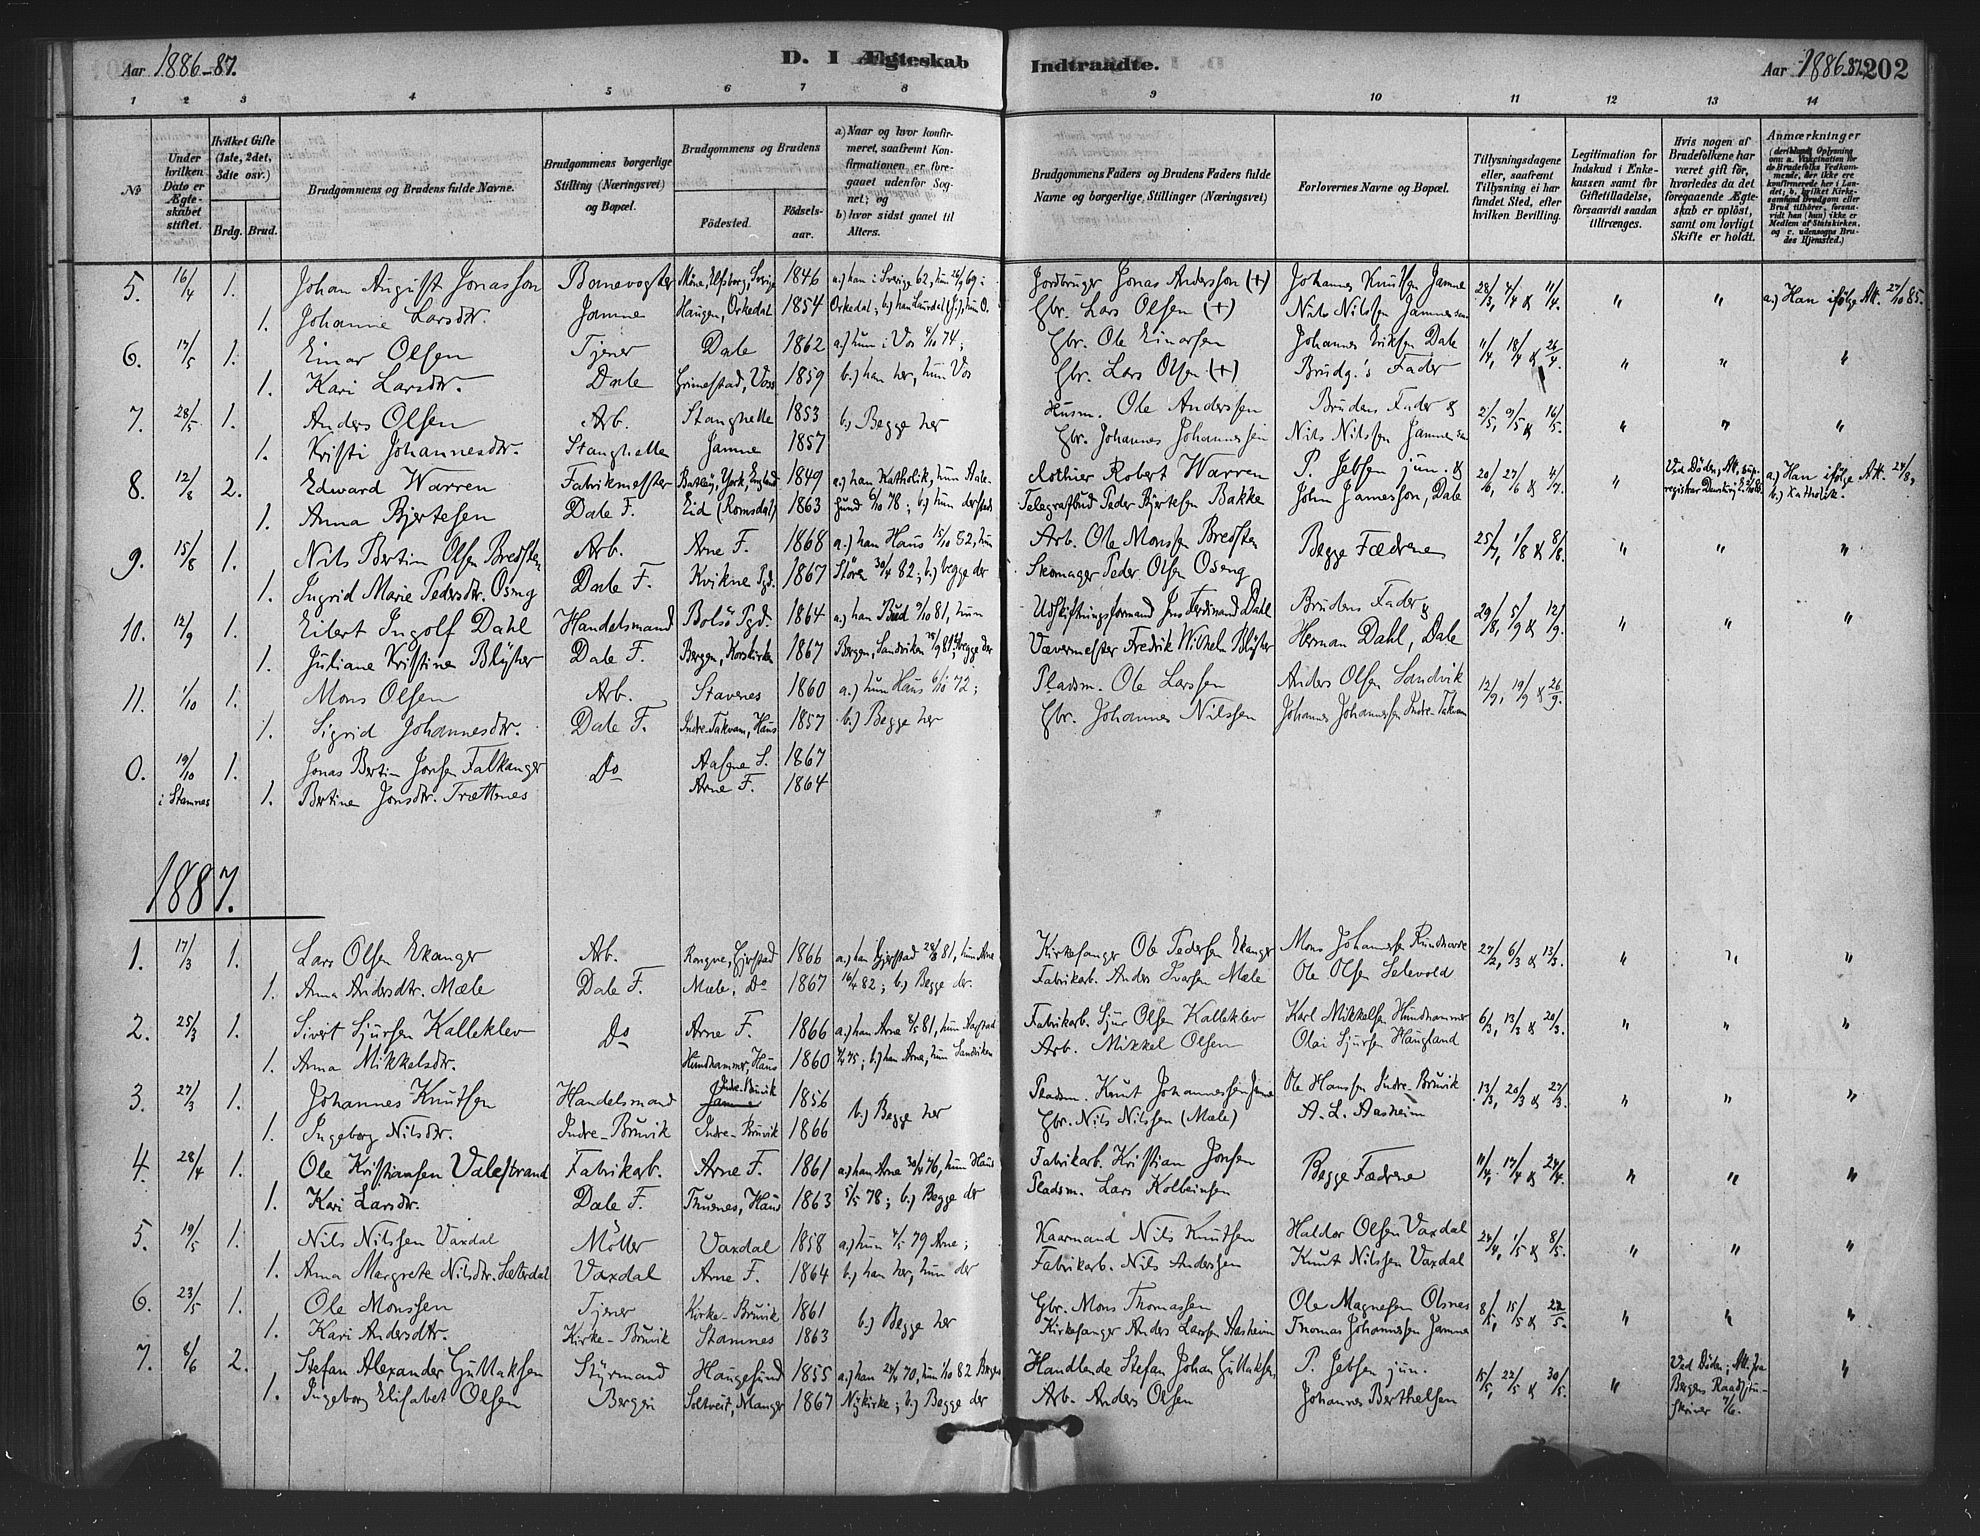 Aar 1886-87.
D. I Ægteskab
Indtraadte.
Aar 1886-87. 202
1 2 3 4 5 6 7 8 9 10 11 12 13 14
No
Under hvilken Dato er Ægteskabet stiftet.
Hvilket Gifte (1ste, 2det, 3die osv.)
Brdg. Brud.
Brudgommens og Brudens fulde Navne.
Brudgommens borgerlige Stilling (Næringsvei) og Bopæl.
Brudgommens og Brudens
Födested.
Födsels-aar.
a) Naar og hvor konfirmeret, saafremt Konfirmationen er foregaaet udenfor Sognet; og
b) hvor sidst gaaet til Alters.
Brudgommens Faders og Brudens Faders fulde Navne og borgerlige Stillinger (Næringsvei)
Forlovernes Navne og Bopæl.
Tillysningsdagene eller, saafremt Tillysning ei har fundet Sted, efter hvilken Bevilling.
Legitimation for Indskud i Enkekassen samt for Giftetilladelse, forsaavidt saadan tiltrænges.
Hvis nogen af Brudefolkene har været gift før, hvorledes da det foregaaende Ægteskab er oplöst, samt om lovligt Skifte er holdt.
Anmærkninger
5. 16/4 1. Johan August Jonasson Banevogter 1846 Jordbruger Jonas Andersson (+) Johannes Knutsen Jamne 28/3, 4/4 & 11/4. " " a.) Han ifølge Att. 27/10 85.
1. Johanne Larsdtr. Jamne Haugen, Orkedal 1854 Gbr. Lars Olsen (+) Nils Nilssen Jamne
6. 17/5 1. Einar Olsen Tjener Dale 1862 a.) hun i Vos 4/10 74; Gbr. Ole Einarsen Johannes Eriksen Dale 11/4, 18/4 & 26/4. " " "
1. Kari Larsdtr. Dale Grimestad, Voss 1859 b.) han her, hun Vos Gbr. Lars Olsen (+) Brudg.'s Fader
7. 28/5 1. Anders Olsen Arb. Stanghelle 1853 b.) Begge her Husm. Ole Anderssen Brudens Fader & 2/5, 9/5 & 16/5. " " "
1. Kristi Johannesdtr. Stanghelle Jamne 1857 Gbr. Johannes Johannessen Nils Nilssen Jamne
8. 12/8 2. Edward Warren Fabrikmester Batley, York, England 1849 a.) han Katholik, hun Aale- Clothier Robert Warren P. Jebsen jun. & 20/6, 27/6 & 4/7. " Ved Döden; a.) Han ifølge Att. b.) Katholik.
1. Anna Bjertesen Dale F. Eid (Romsdal) 1863 sund 6/10 78; b.) hun dersteds Telegrafbud Peder Bjertesen Bakke John Jamesson, Dale
9. 15/8 1. Nils Bertin Olsen Bredsten Arb. Arne F. 1868 a.) han Haus 15/10 82, hun Arb. Ole Monssen Bredsten Begge Fædrene 25/7, 1/8 & 8/8. " " "
1. Ingrid Marie Pedersdtr. Oseng Dale F. Kvikne Pgd. 1867 Stören 30/4 82; b.) begge der Skomager Peder Olsen Oseng
10. 12/9 1. Eilert Ingolf Dahl Handelsmand Bolsö Pgd. 1864 a.) han Bud 9/10 81, hun Udskiftningsformand Jens Ferdinand Dahl Brudens Fader & 29/8, 5/9 & 12/9. " " "
1. Juliane Kristine Blyster Dale F. Bergen, Korskirken 1867 Bergen, Sandviken Begge der Vævermester Fredrik Wilhelm Blyster Herman Dahl, Dale
11. 1/10 1. Mons Olsen Arb. Stavenes 1860 a.) hun Haus 6/10 72; Pladsm. Ole Larssen Anders Olsen Sandvik 12/9, 19/9 & 26/9.
1. Sigrid Johannesdtr. Dale F. Indre-Takvam, Haus 1857 b.) Begge her Gbr. Johannes Nilssen Johannes Johannessen Indre-Takvam
0. 19/10 1. Jonas Bertin Jonsen Falkanger Do 1867
i Stamnes 1. Bertine Jonsdtr. Trættenes Arne F. 1864
1887.
1. 17/3 1. Lars Olsen Ekanger Arb. 1866 Kirkesanger Ole Pedersen Ekanger Mons Johannessen Rundhovde 27/2, 6/3 & 13/3. " " "
1. Anna Andersdtr. Mæle Dale F. Mæle, Do 1867 16/4 82; b.) Begge der. Fabrikarb. Anders Ivarsen Mæle Ole Olsen Selevold
2. 25/3 1. Sivert Sjursen Kalleklev Do Arne F. 1866 Fabrikarb. Sjur Olsen Kalleklev Karl Mikkelsen Hundhammer 6/3, 13/3 & 20/3. " " "
1. Anna Mikkelsdtr. Hundhammer, Haus 1860 b.) han Arne, hun Sandviken Arb. Mikkel Olsen Olai Sjursen Haugland
3. 27/3 1. Johannes Knutsen Handelsmand Indre-Bruvik 1856 b.) Begge her Pladsm. Knut Johannessen Jamne Ole Hanssen Indre-Bruvik 13/3, 20/3 & 27/3. " " "
1. Ingeborg Nilsdtr. Indre-Bruvik Indre-Bruvik 1866 Gbr. Nils Nilssen (Mæle) A. L. Aasheim
4. 28/4 1. Ole Kristiansen Valestrand Fabrikarb. Arne F. 1861 a.) han Arne 30/4 76, hun Haus Fabrikarb. Kristian Jonsen Begge Fædrene 11/4, 17/4 & 24/4. " " "
1. Kari Larsdtr. Dale F. Thuenes, Haus 1863 5/5 78; b.) Begge der Pladsm. Lars Kolbeinsen
5. 19/5 1. Nils Nilssen Vaxdal Möller Vaxdal 1858 a.) hun 4/5 79 Arne; Kaarmand Nils Knutsen Haldor Olsen Vaxdal 24/4, 1/5 & 8/5. " " "
1. Anna Margrete Nilsdtr. Sæterdal Vaxdal Arne F. 1864 b.) han her, hun der Fabrikarb. Nils Anderssen Knut Nilssen Vaxdal
6. 23/5 1. Ole Monssen Tjener Kirke-Bruvik 1861 b.) Begge her Gbr. Mons Thomassen Ole Magnesen Olsnes 8/5, 15/5 & 22/5. " " "
1. Kari Andersdtr. Kirke-Bruvik Stamnes 1863 Kirkesanger Anders Larssen Aasheim Thomas Johannessen Jamne
7. 8/6 2. Stefan Alexander Guttaksen Styrmand Haugesund 1855 Handlende Stefan Johan Guttaksen P. Jebsen jun. 15/5, 22/5 & 30/5. " Ved Döden; Att. fra Bergens Raadstuskriver 7/6. "
1. Ingeborg Elisabet Olsen Bergen Soltveit, Manger 1867 Nykirke; b.) Begge der Arb. Anders Olsen Johannes Berthelsen